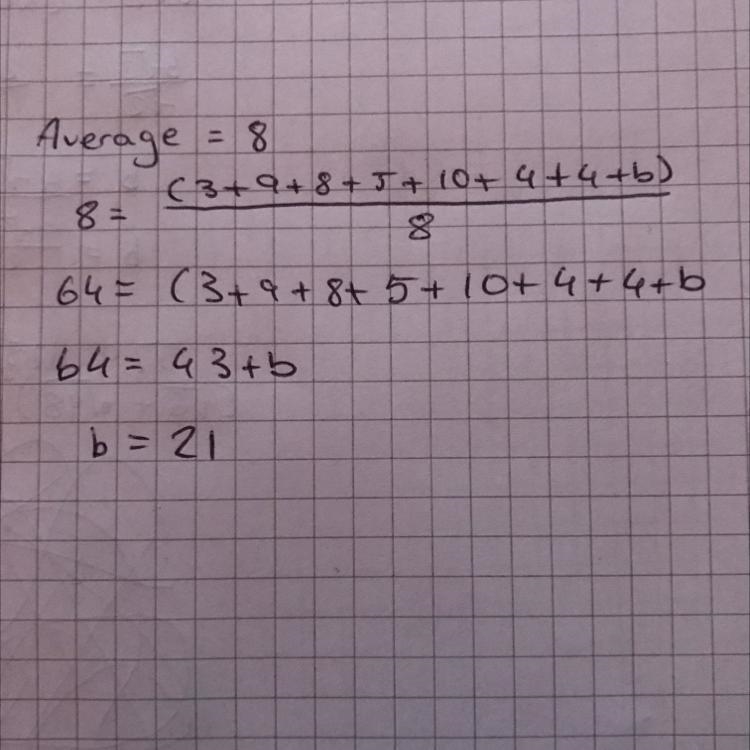 Average = 8
8 = (3+9+8+5+10+4+4+b)
8
64 = (3+9+8+5+10+4+4+b
64 = 43+b
b = 21